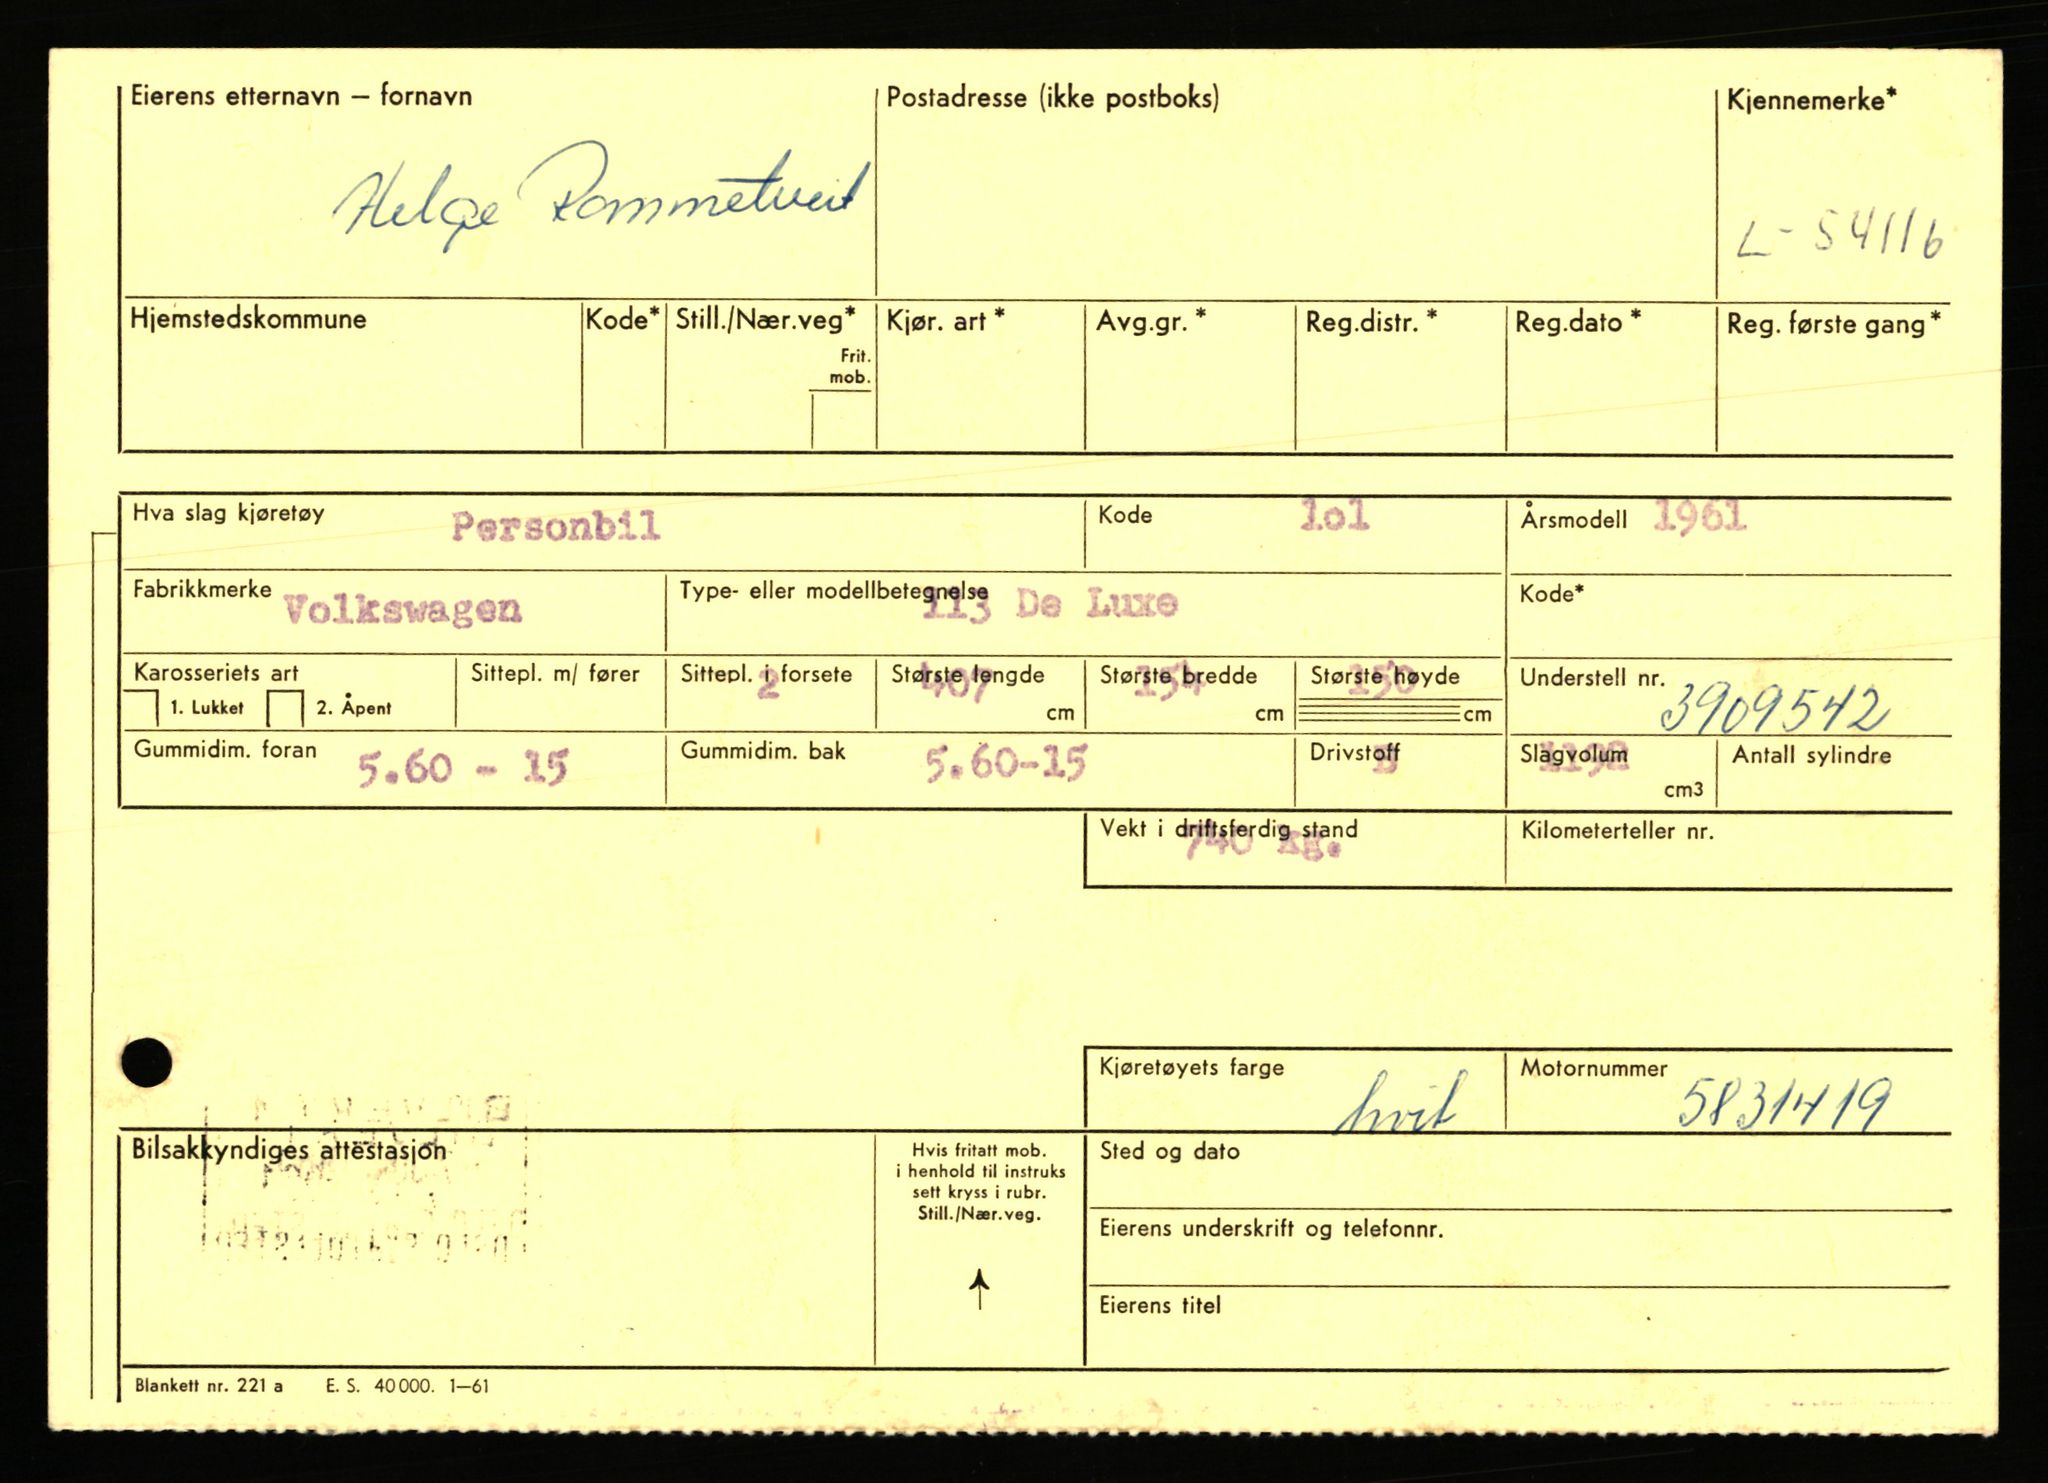 Eierens etternavn — fornavn
Postadresse (ikke postboks)
Kjennemerke*
Helge Rommetveit
L - 54116
Hjemstedskommune
Kode*
Still./Nær.veg*
Frit. mob.
Kjør. art *
Avg.gr. *
Reg.distr. *
Reg.dato *
Reg. første gang *
Hva slag kjøretøy Personbil
Kode 1o1
Årsmodell 1961
Fabrikkmerke Volkswagen
Type- eller modellbetegnelse 113 De Luxe
Kode*
Karosseriets art
1. Lukket 2. Åpent
Sittepl. m/ fører
Sittepl. i forsete 2
Største lengde 407 cm
Største bredde 154 cm
Største høyde 150 cm
Understell nr. 3909542
Gummidim. foran 5.60 - 15
Gummidim. bak 5.60-15
Drivstoff B
Slagvolum 1192 cm3
Antall sylindre
Vekt i driftsferdig stand 740 kg.
Kilometerteller nr.
Kjøretøyets farge hvit
Motornummer 5831419
Bilsakkyndiges attestasjon
Hvis fritatt mob.
i henhold til instruks
sett kryss i rubr.
Still./Nær.veg.
Sted og dato
Eierens underskrift og telefonnr.
Eierens titel
Blankett nr. 221 a E. S. 40 000. 1—61